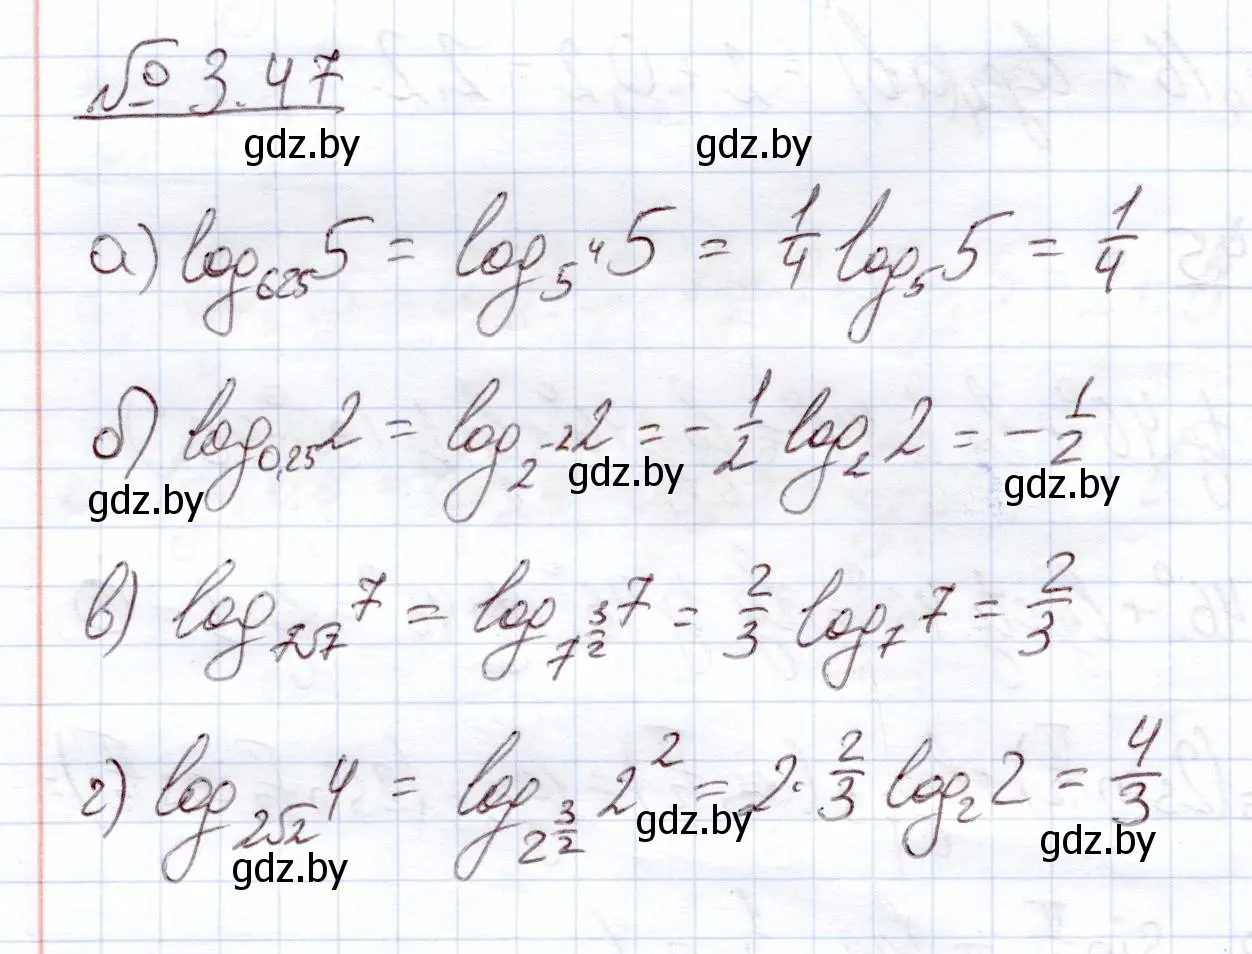 № 3.47
gdz.by gdz.by
а) log₆₂₅ 5 = log_{5^4} 5 = 1/4 log₅ 5 = 1/4
б) log_{0,25} 2 = log_{2^{-2}} 2 = -1/2 log₂ 2 = -1/2
gdz.by gdz.by gdz.by
в) log_{7√7} 7 = log_{7^{3/2}} 7 = 2/3 log₇ 7 = 2/3
г) log_{2√2} 4 = log_{2^{3/2}} 2² = 2 · 2/3 log₂ 2 = 4/3
gdz.by gdz.by gdz.by